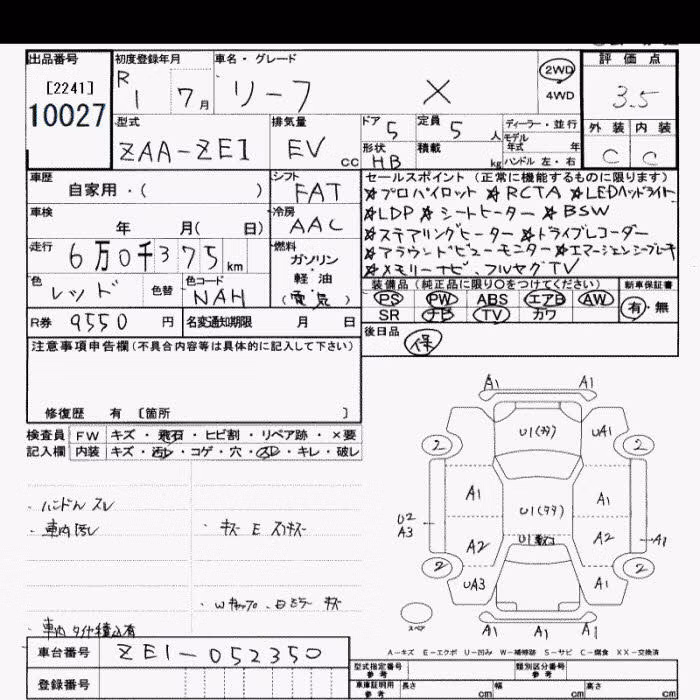 出品番号 初度登録年月 車名・グレード 評価点
[2241] R 1 7月 リーフ X 2WD 3.5
10027 4WD
型式 排気量 ドア 5 定員 5人 ディーラー・並行 外装 内装
ZAA-ZE1 EV cc モデル 年式 年 C C
形状 HB 積載 kg ハンドル 左・右
車歴 シフト セールスポイント (正常に機能するものに限ります)
自家用・( ) FAT ☆プロパイロット ☆RCTA ☆LEDヘッドライト
車検 冷房 ☆LDP ☆シートヒーター ☆BSW
年 月( 日) AAC ☆ステアリングヒーター ☆ドライブレコーダー
走行 燃料 ☆アラウンドビューモニター ☆エマージェンシーブレーキ
6万0千375km ガソリン・軽油・(電気) ☆メモリーナビ、フルセグTV
色 レッド 色替 色コード NAH 装備品 (純正品に限り○をつけてください) 新車保証書
PS PW ABS エアB AW 有・無
SR ナビ TV カワ
R券 9550円 名変通知期限 月 日 後日品
保
注意事項申告欄(不具合内容等は具体的に記入して下さい)
修復歴 有 [箇所 ]
検査員 FW キズ・飛石・ヒビ割・リペア跡・×要
記入欄 内装 キズ・汚レ・コゲ・穴・スレ・キレ・破レ
・ハンドル スレ
・車内 汚レ
・キズ E スリキズ
・Wキャップ、ドミラー キズ
車内 タイヤ積込有
A1 A1
2 U1(タタ) UA1 2
A1 U1(タタ) A1
U2
A3 A2 A2 A1
2 UA3 A1 2
スペア A1 A1 A1
A-キズ E-エクボ U-凹み W-補修跡 S-サビ C-腐食 XX-交換済
車台番号 ZE1-052350
登録番号
型式指定番号 参考 類別区分番号 参考
車庫証明用 参考 長さ cm 幅 cm 高さ cm